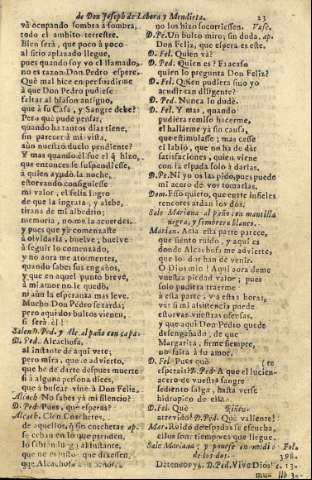 de Don Joseph de Lobera y Mendieta. 23
vá ocupando sombra à sombra,
todo el ambito terrestre.
Bien será, que poco à poco
al sitio aplazado llegue,
pues quando soy yo el llamado,
no es razon Don Pedro espere.
Què mal hice en persuadirme
à que Don Pedro pudiesse
faltar al blason antiguo,
que à su Casa, y Sangre debe?
Pero què pude pensar,
quando ha tantos dias tiene,
sin parecer à mi vista,
aun nuestro duelo pendiente?
Y mas quando èl fue el q̃ hizo,
que entonces se suspendiesse,
à quien ayudò la noche,
estorvando consiguiesse
mi valor, el feliz logro
de que la ingrata, y aleve,
tirana de mi alvedrio;
memoria, no me la acuerdes,
y pues que yà comenzaste
à olvidarla, buelve, buelve
à seguir lo comenzado,
y no aora me atormentes,
quando sabes sus engaños,
y que en aquel punto breve,
à mi amor no le quedò,
ni aun la esperanza mas leve.
Mucho Don Pedro se tarda;
pero aqui dos bultos vienen,
si serà èl!
Salen D. Ped. y Alc. al paño con capas.
D. Ped. Alcachofa,
al instante de aqui vete;
pero mira, que te advierto,
que he de darte despues muerte
si à alguna persona dices,
que à buscar vine à Don Felix.
Alcach. No sabes yà mi silencio?
D. Ped. Pues què esperas?
Alcach. Cien Corchetes,
de aquellos, q̃ sin corchetas ap.
se ceban en lo que prenden,
lo sabràn luego al instante,
que no es razon, que dixessen,
que Alcachofa
no los hizo socorriessen. Vase.
D. Pe. Un bulto miro, sin duda, ap.
Don Felix, que espera es este.
D. Fel. Quien và?
D. Ped. Quien es? Es acaso
quien lo pregunta Don Felix?
D. Fel. Quien pudiera sino yo
acudir tan diligente?
D. Ped. Nunca lo dudè.
D. Fel. Y mas, quando
pudiera remisso hacerme,
el hallarme yà sin causa,
que estimulasse; mas cesse
el labio, que no ha de dar
satisfacciones, quien viene
con la espada solo à darlas.
D. Pe. Ni yo os las pido, pues puede
mi acero de vos tomarlas.
Dom. Esso quieto, que entre infieles
rincones tardan los dos.
Sale Mariana al paño con mantilla
negra, y sombrero blanco.
Marian. Àcia esta parte parece,
que siento ruido, y aqui es
donde Alcachofa me advierte,
que los dos han de venir.
O Dios mio! Aqui aora deme
vuestra piedad valor; pues
solo pudiera traerme
à esta parte, y à estas horas,
vèr si mi assistencia puede
estorvar vuestras ofensas,
y que aqui Don Pedro quede
desengañado, de que
Margarita, firme siempre,
no falta à su amor.
D. Fel. Pues què
esperais? D. Ped. A que el lucien- (te
acero de vuestra sangre
sediento salga, hasta verse
hidropico de ella.
D. Fel. Què Riñen.
atrevido! D. Ped. Què valiente!
Mar. Ruido de espadas se escucha,
ellos son: tiempo es que llegue.
Sale Mariana, y ponese en medio
de los dos. Fol. 398.
Deteneos ya. D. Ped. Vive Dios! c. 13.
mun. lib 3.